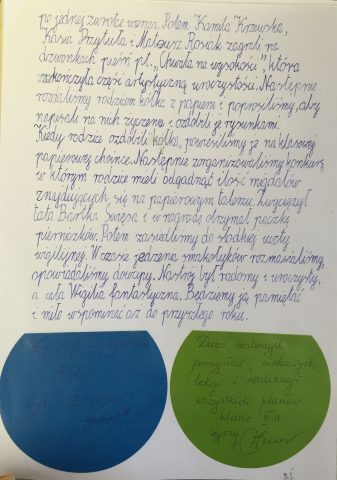 po jednej zwrotce wiersza. Potem Kamila Krzewska,
Kasia Przytuła i Mateusz Rosiak zagrali na
dzwonkach pieśń pt. „Chwała na wysokości", która
zakończyła część artystyczną uroczystości. Następnie
rozdaliśmy rodzicom kółka z papieru i poprosiliśmy, aby
napisali na nich życzenia i ozdobili je rysunkami.
Kiedy rodzice ozdobili kółka, powiesiliśmy je na klasowej
papierowej choince. Następnie zorganizowaliśmy konkurs,
w którym rodzice mieli odgadnąć ilość migdałów
znajdujących się na papierowym talerzu. Zwyciężył
tata Bartka i w nagrodę otrzymał paczkę
pierniczków. Potem zasiedliśmy do słodkiej uczty
wigilijnej. W czasie jedzenia smakołyków rozmawialiśmy,
opowiadaliśmy dowcipy. Nastrój był radosny i uroczysty,
a cała Wigilia fantastyczna. Będziemy ją pamiętać
i miło wspominać aż do przyszłego roku.
Dużo szalonych
pomysłów, ciekawych
lekcji i realizacji
wszystkich planów
klasie
życzy